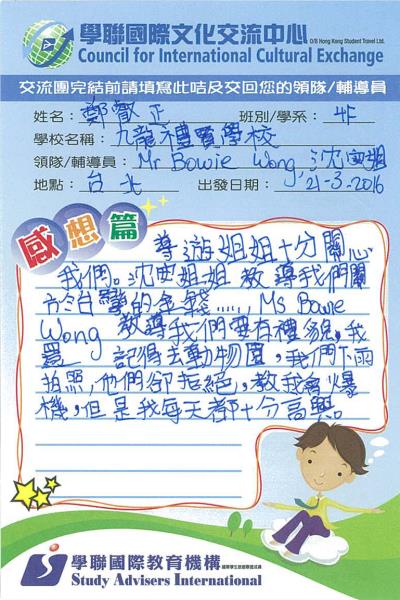 學聯國際文化交流中心 O/B Hong Kong Student Travel Ltd.
Council for International Cultural Exchange
交流團完結前請填寫此咭及交回您的領隊/輔導員
姓名： 鄭叡正 班別/學系： 4F
學校名稱： 九龍禮賢學校
領隊/輔導員： Mr Bowie Wong, 沈姐姐
地點： 台北 出發日期： 21-3-2016
感想篇
導遊姐姐十分關心
我們。沈姐姐教導我們關
於台灣的金錢......, Ms Bowie
Wong 教導我們要有禮貌,我
還記得去動物園,我們
拍照,他們卻拒絕,教我爆
機,但是我每天都十分高興。
學聯國際教育機構
Study Advisers International